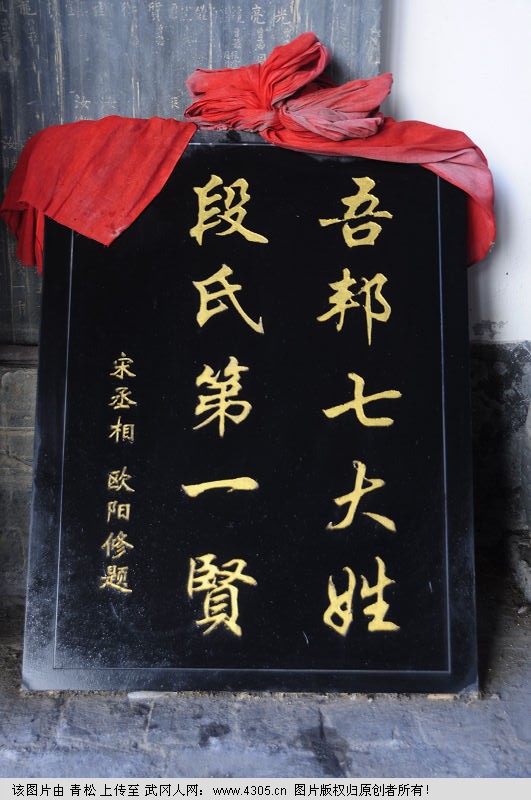 吾邦七大姓
段氏第一賢
宋丞相 欧阳修题
该图片由 青松 上传至 武冈人网：www.4305.cn 图片版权归原创者所有！